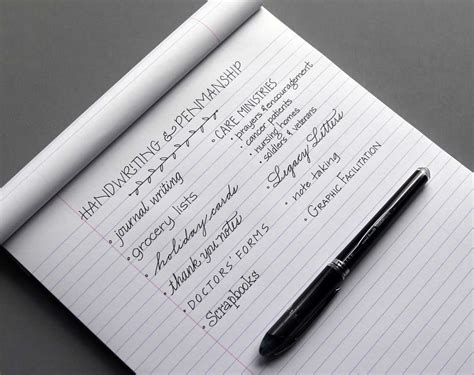 HANDWRITING & PENMANSHIP
• journal writing
• grocery lists
• holiday cards
• thank you notes
• DOCTORS' FORMS
• Scrapbooks
• CARE MINISTRIES
• prayers & encouragement
• cancer patients
• nursing homes
• soldiers & veterans
• Legacy Letters
• note taking
• GRAPHIC FACILITATION